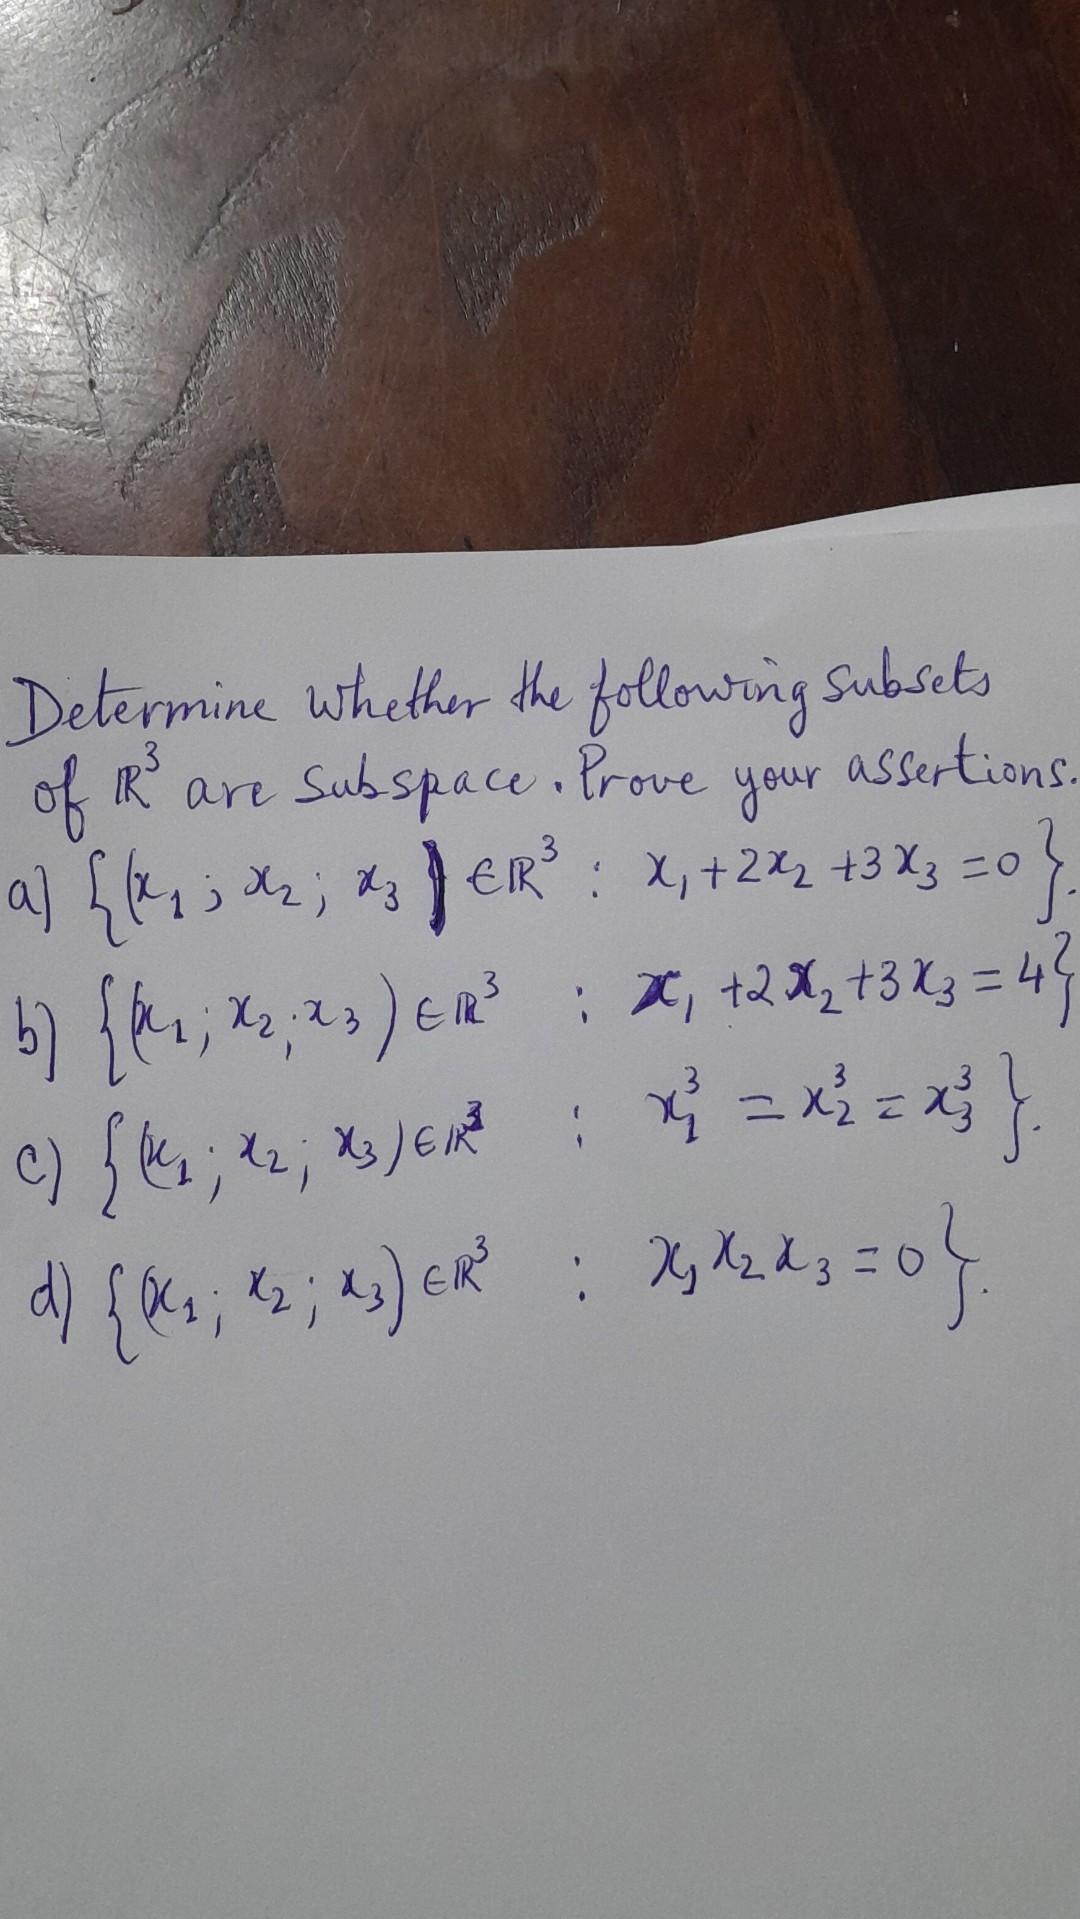 Determine whether the following subsets
of ℝ³ are subspace. Prove your assertions.
a) {(x₁; x₂; x₃) ∈ ℝ³ : x₁ + 2x₂ + 3x₃ = 0}.
b) {(x₁; x₂; x₃) ∈ ℝ³ : x₁ + 2x₂ + 3x₃ = 4}
c) {(x₁; x₂; x₃) ∈ ℝ³ : x₁³ = x₂³ = x₃³}.
d) {(x₁; x₂; x₃) ∈ ℝ³ : x₁x₂x₃ = 0}.